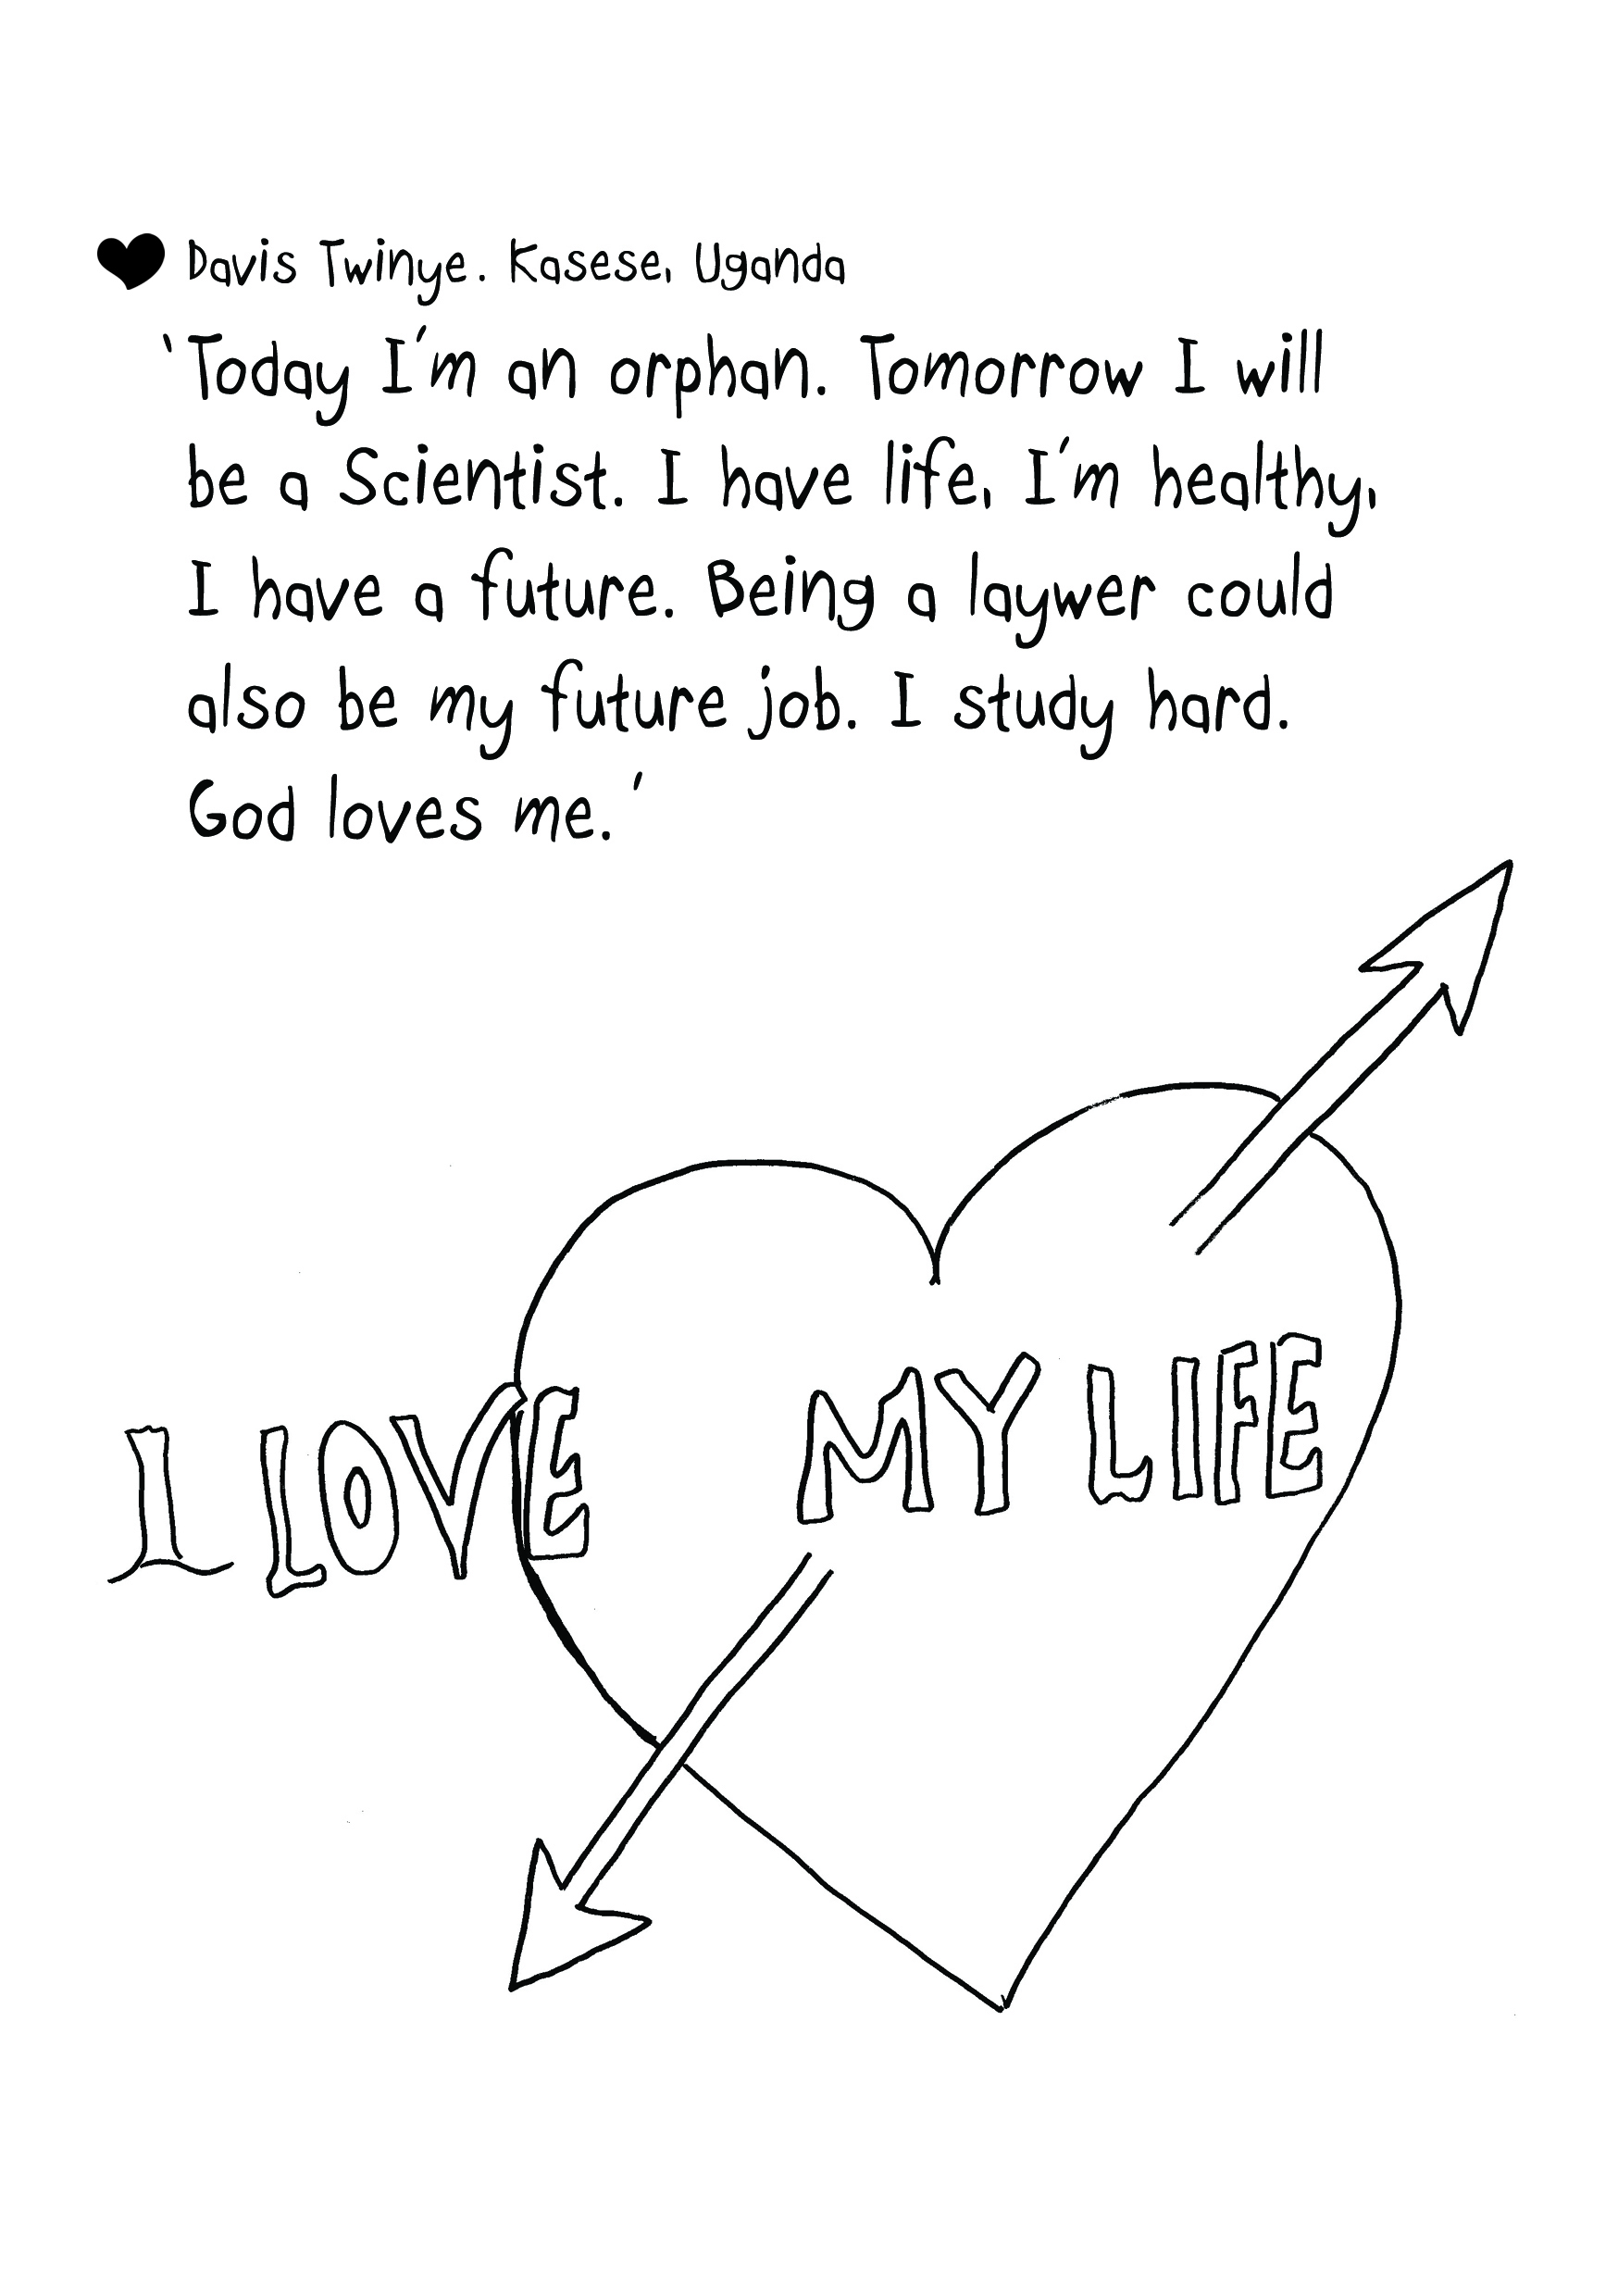 Davis Twinye. Kasese, Uganda
'Today I'm an orphan. Tomorrow I will
be a Scientist. I have life, I'm healthy,
I have a future. Being a laywer could
also be my future job. I study hard.
God loves me.'
I LOVE MY LIFE